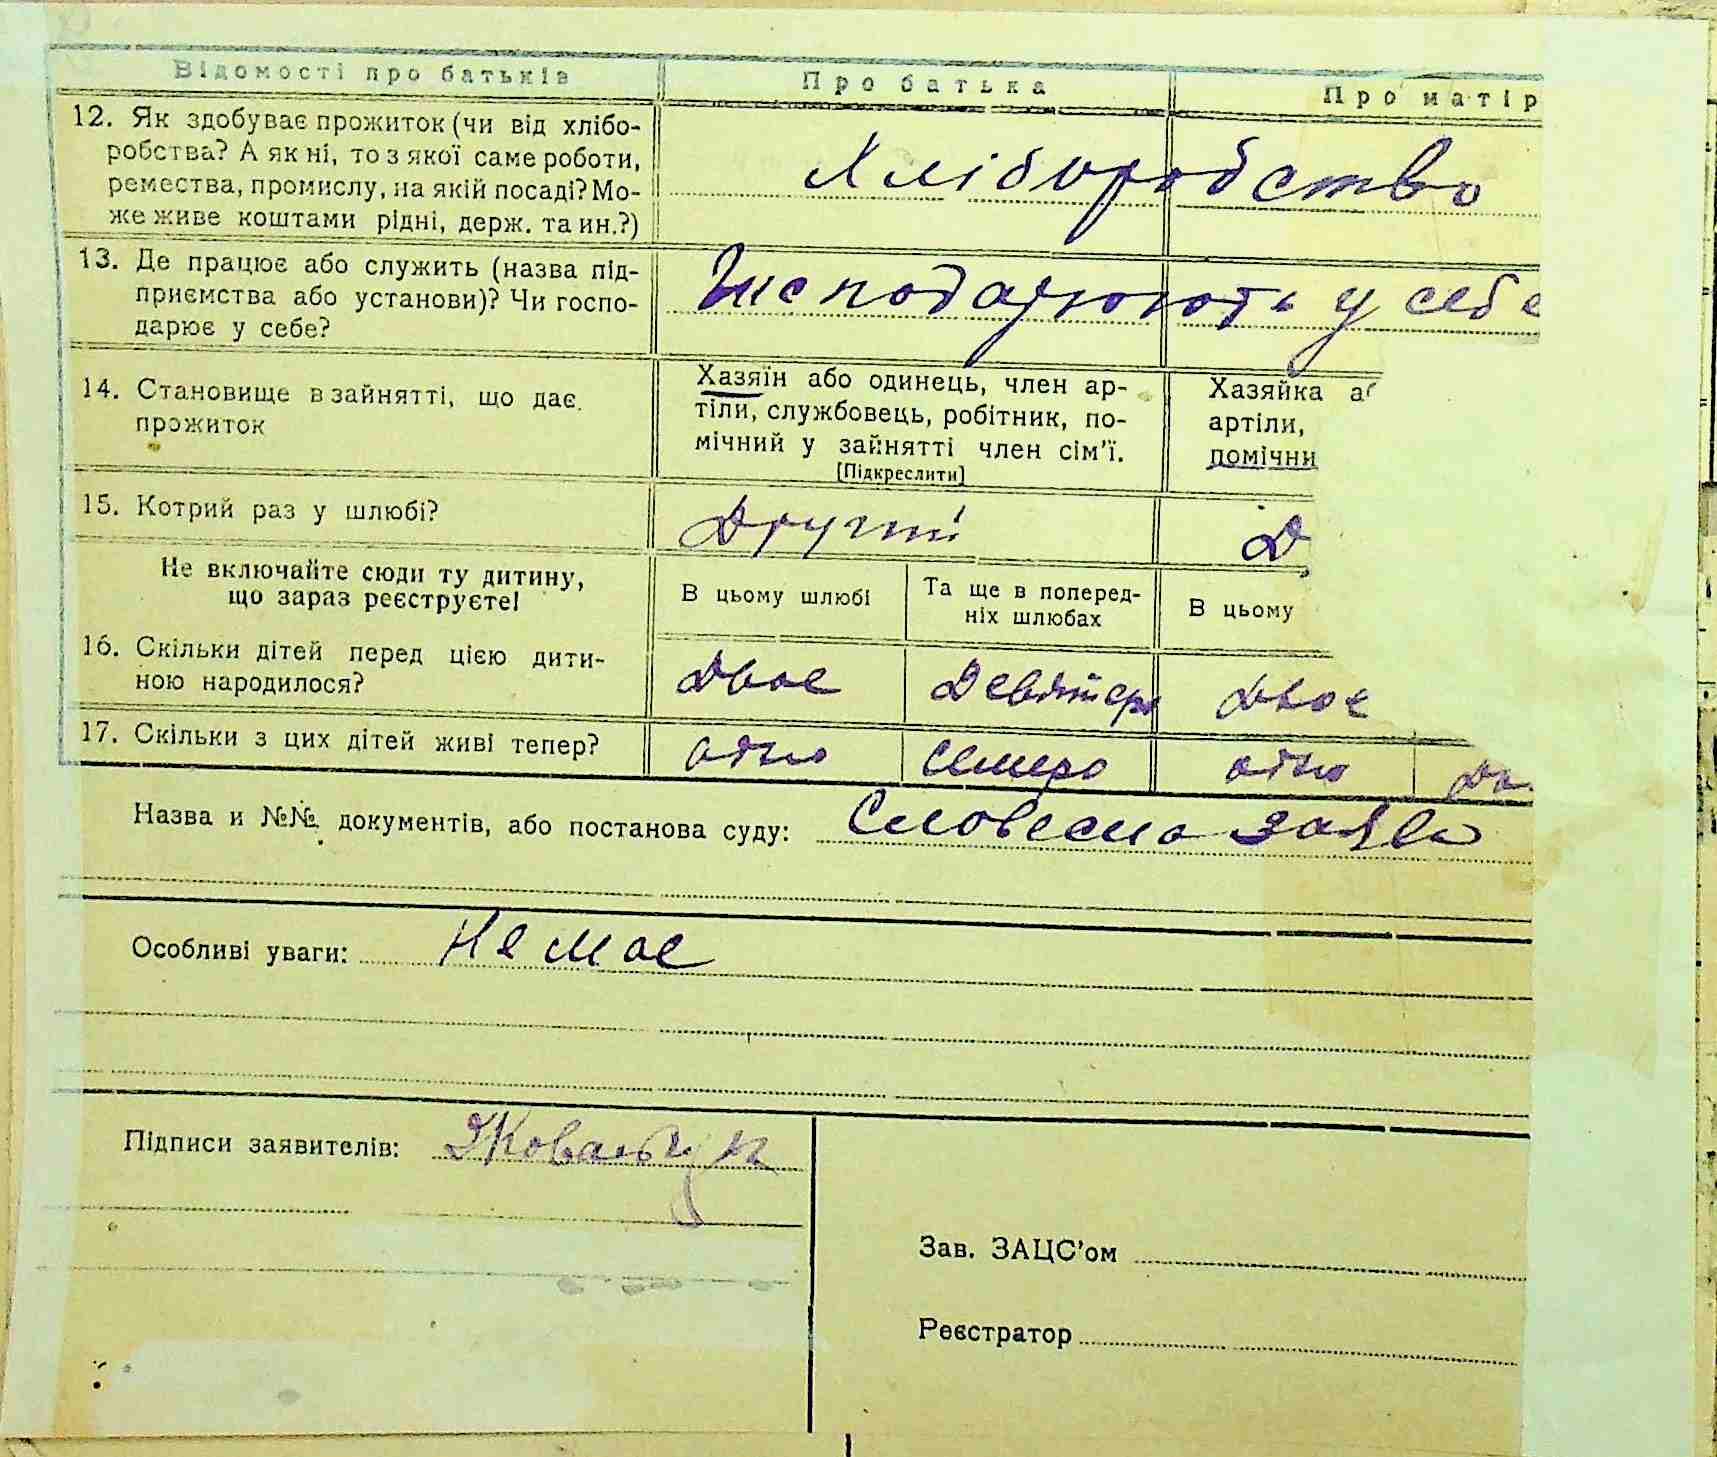 Відомості про батьків Про батька Про матір
12. Як здобуває прожиток (чи від хлібо-
робства? А як ні, то з якої саме роботи,
ремества, промислу, на якій посаді? Мо-
же живе коштами рідні, держ. та ин.?)
Хліборобство
13. Де працює або служить (назва під-
приємства або установи)? Чи госпо-
дарює у себе?
Господарюють у себе
14. Становище в зайнятті, що дає
прожиток
Хазяїн або одинець, член ар-
тіли, службовець, робітник, по-
мічний у зайнятті член сім'ї.
[Підкреслити]
Хазяйка аб
артіли,
помічни
15. Котрий раз у шлюбі?
Другий Д
Не включайте сюди ту дитину,
що зараз реєструєте!
В цьому шлюбі
Та ще в поперед-
ніх шлюбах
В цьому
16. Скільки дітей перед цією дити-
ною народилося?
Двоє Девятеро Двоє
17. Скільки з цих дітей живі тепер?
одно семеро одно дв
Назва и №№ документів, або постанова суду: Словесна заява
Особливі уваги: Немає
Підписи заявителів: Ковальчук
Зав. ЗАЦС'ом
Реєстратор